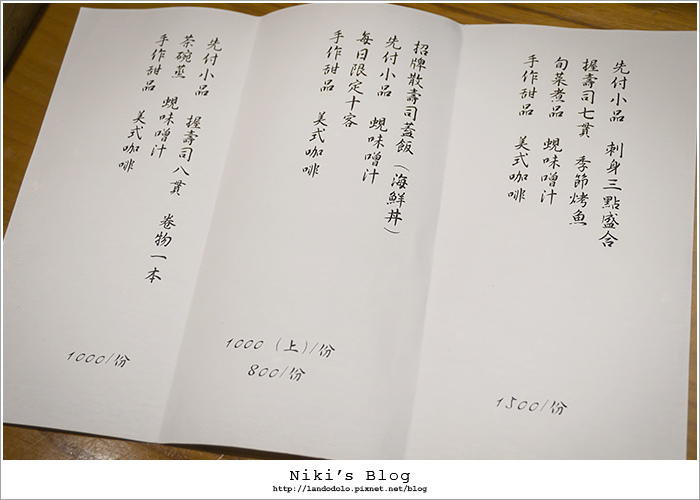 先付小品　刺身三點盛合
握壽司七貫　季節烤魚
旬菜煮品　蜆味噌汁
手作甜品　美式咖啡
1500/份
招牌散壽司蓋飯（海鮮丼）
先付小品　蜆味噌汁
每日限定十客
手作甜品　美式咖啡
1000（上)/份
800/份
先付小品　握壽司八貫　卷物一本
茶碗蒸　蜆味噌汁
手作甜品　美式咖啡
1000/份
Niki's Blog
http://landodolo.pixnet.net/blog